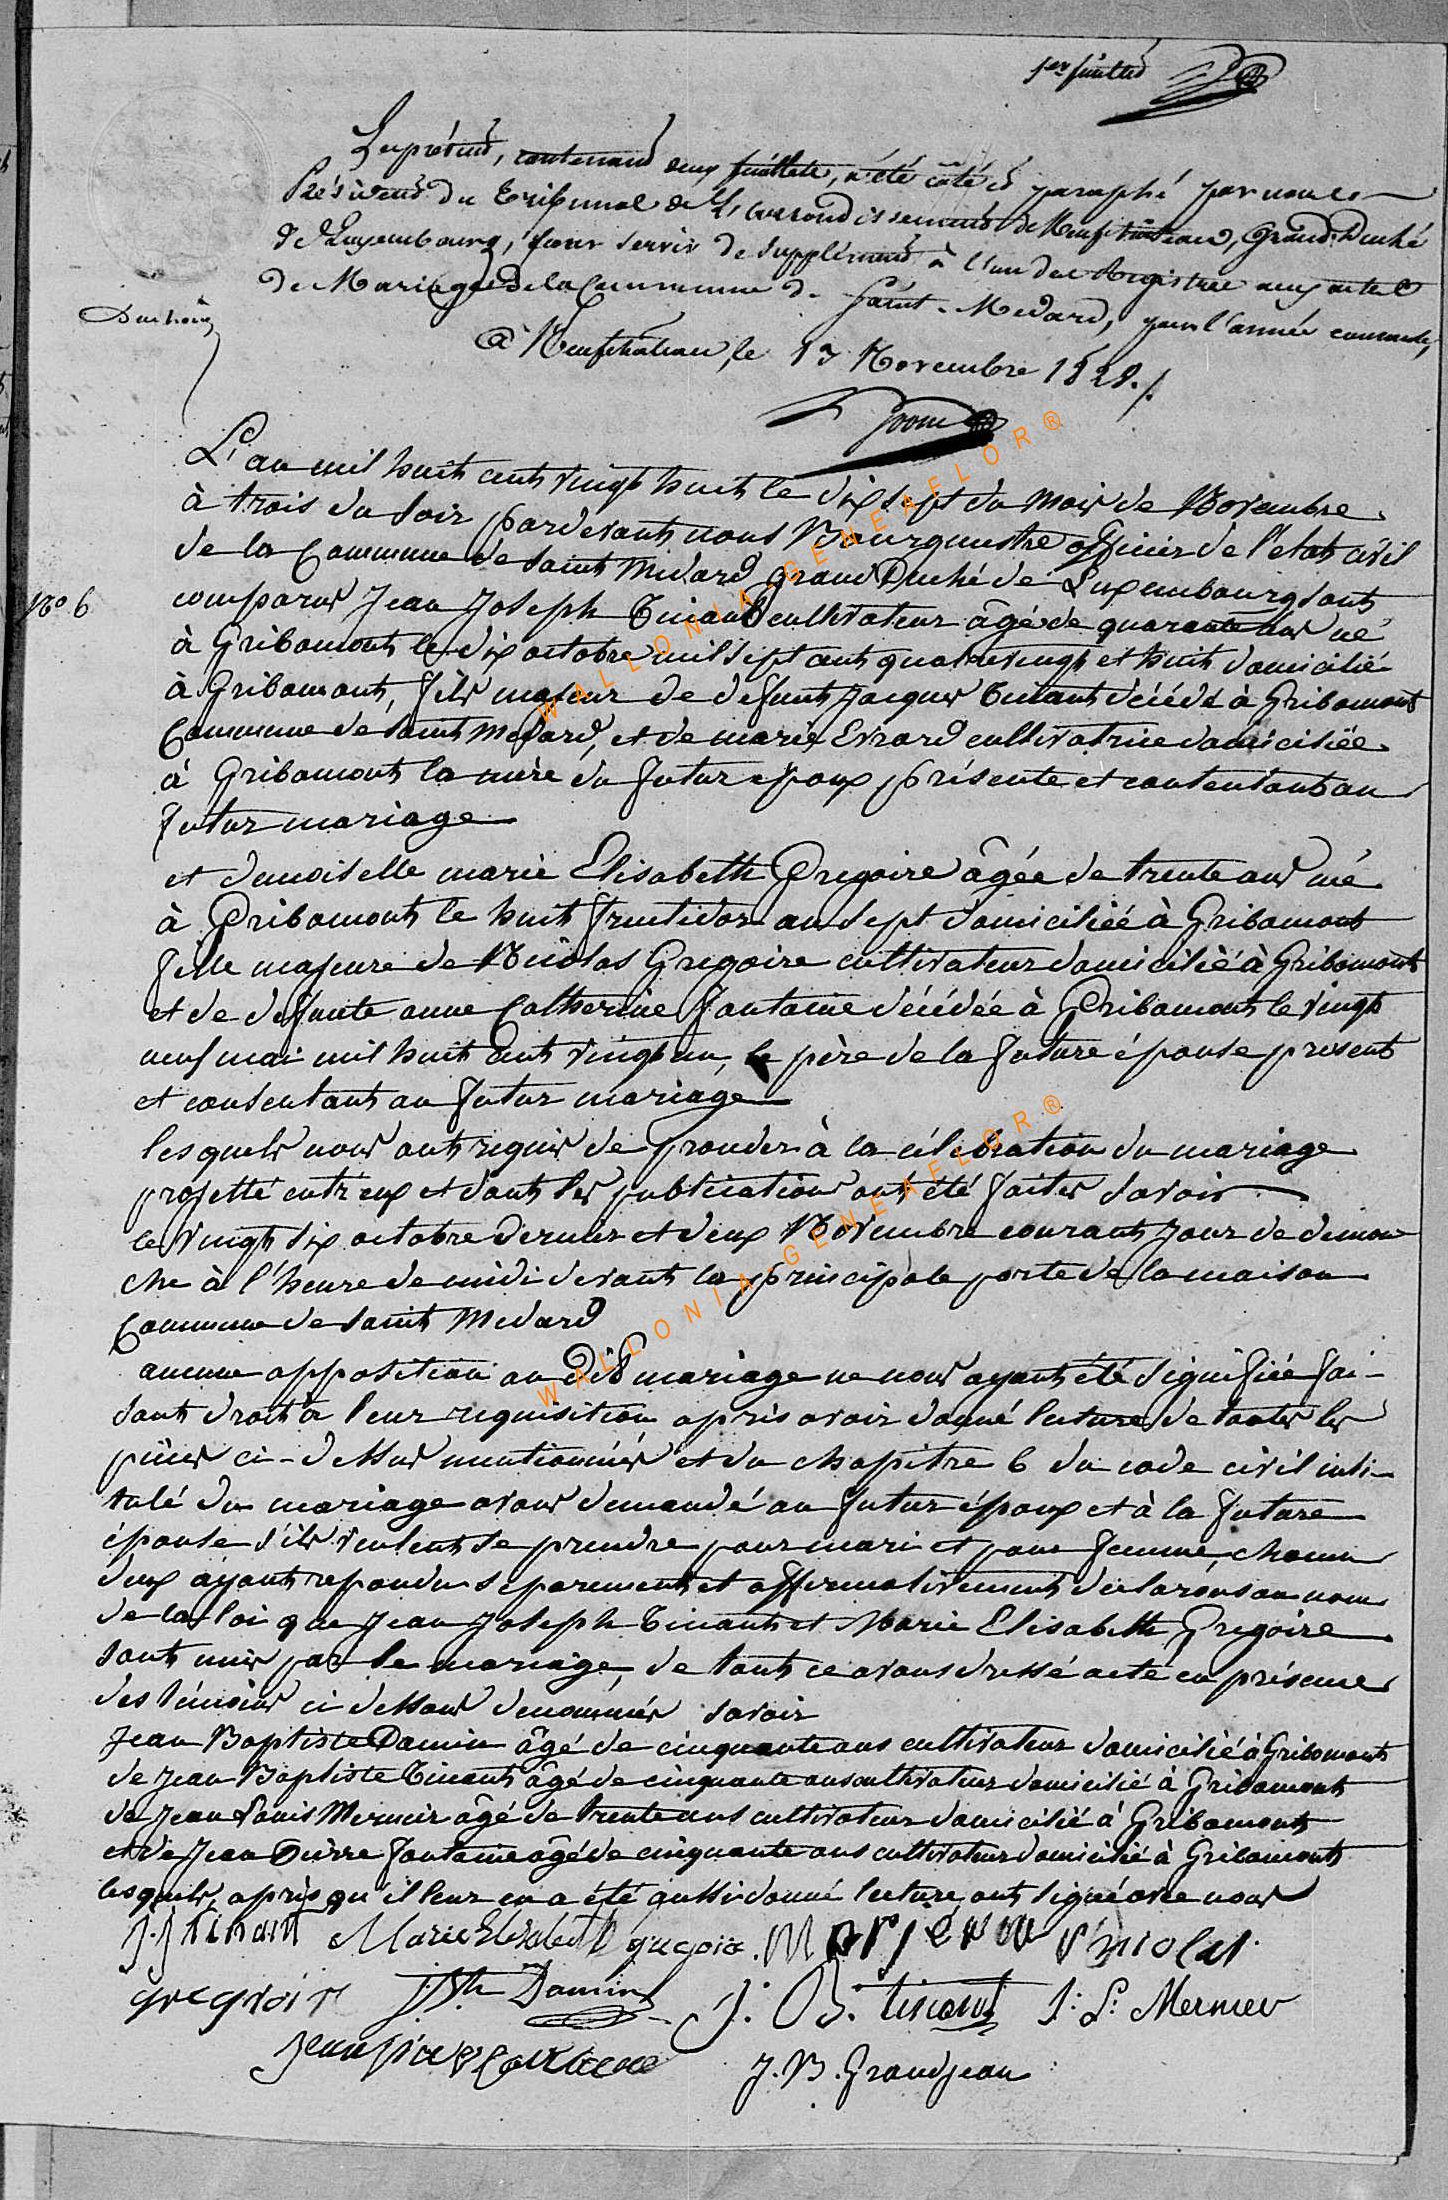 1er feuillet
Le présent, contenant deux feuillets, a été côté et paraphé par nous
Président du Tribunal de L'arrondissement de Neufchateau, Grand-Duché
de Luxembourg, pour servir de supplément à l'un des Registres aux actes
de Mariages de la Commune de Saint-Médard, pour l'année courante,
à Neufchateau, le 13 Novembre 1828./.
L'an mil huit cent vingt huit le dix sept du mois de Novembre
à trois du soir pardevant nous Bourgmestre officier de l'etat civil
de la Commune de Saint Medard grand Duché de Luxembourg sont
N° 6
comparus Jean Joseph Tinant cultivateur âgé de quarante ans né
à Gribomont le dix octobre mil sept cent quatrevingt et huit domicilié
à Gribomont, fils majeur de defunt Jacques Tinant décédé à Gribomont
Commune de Saint Medard, et de marie Evrard cultivatrice domiciliée
à Gribomont la mère du futur epoux présente et contentant au
futur mariage
et demoiselle marie Elisabeth Gregoire âgée de trente ans né
à Gribomont le huit fructidor an sept domiciliée à Gribomont
fille majeure de Nicolas Gregoire cultivateur domicilié à Gribomont
et de defunte anne Catherine fontaine décédée à Gribomont le vingt
neuf mai mil huit cent vingt un, le père de la future épouse present
et consentant au futur mariage
lesquels nous ont requis de proceder à la célebration du mariage
projetté entr'eux et dont les publications ont été faites savoir
le vingt six octobre dernier et deux Novembre courant jour de diman
che à l'heure de midi devant la principale porte de la maison
Commune de Saint Medard
aucune opposition au Dit mariage ne nous ayant été signifiée fai-
sant droit à leur requisition après avoir donné lecture de toutes les
pièces ci-dessus mentionnées et du chapitre 6 du code civil inti-
tulé du mariage avons demandé au futur époux et à la future
épouse s'ils veulent se prendre pour mari et pour femme, chacun
deux ayant repondu separement et affirmativement declarons au nom
de la loi que Jean Joseph Tinant et Marie Elisabeth Gregoire
sont unis par le mariage, de tout ce avons dressé acte en présence
des témoins ci dessous denommés savoir
Jean Baptiste Damin âgé de cinquante ans cultivateur domicilié à Gribomont
de Jean Baptiste Tinant âgé de cinquante ans cultivateur domicilié à Gribomont
de Jean Louis Mernier âgé de trente ans cultivateur domicilié à Gribomont
et de Jean Pierre fontaine âgé de cinquante ans cultivateur domicilié à Gribomont
lesquels, après qu'il leur en a été aussi donné lecture, ont signé avec nous
J.J tinant Marie Elisabeth gregoire
gregroire J. Bte Damin J. B. tinant J. L. Mernier
Jean pierre fontaine J. B. Grandjean
WALLONIA-GENEAFLOR®
WALLONIA-GENEAFLOR®